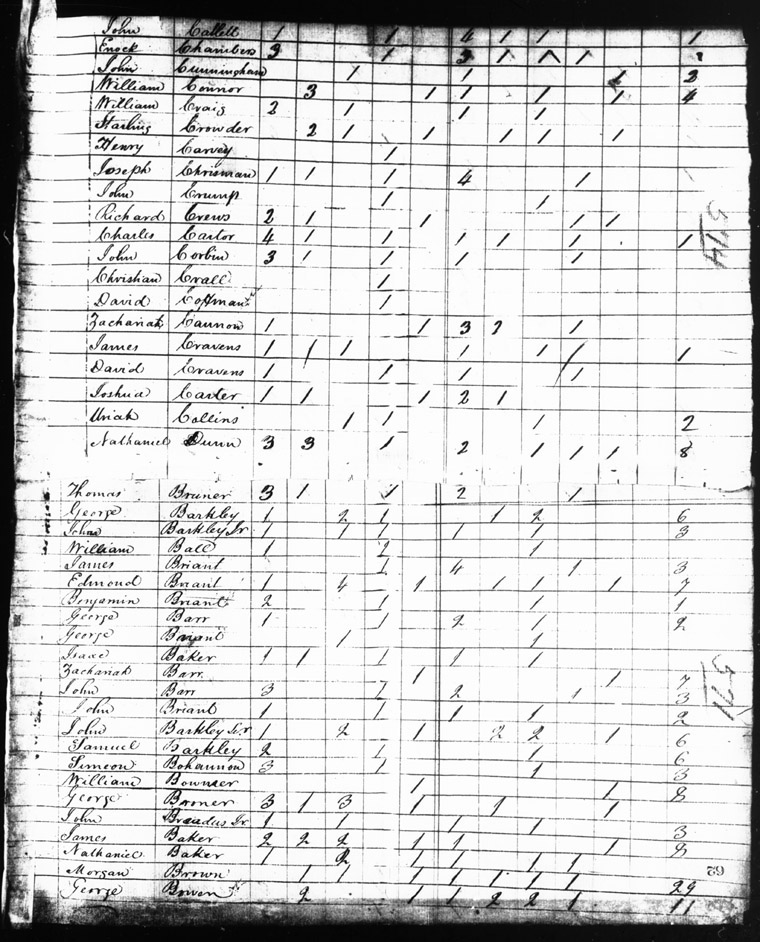 John Catlett 1 1 4 1 1 1
Enock Chambers 3 1 3 1 1 1
John Cunningham 1 1 1 3
William Connor 3 1 1 1 1 4
William Craig 2 1 1 1
Starling Crowder 2 1 1 1 1 1
Henry Carvey 1
Joseph Chrisman 1 1 1 4 1
John Crump 1 1
Richard Crews 2 1 1 1 1
Charles Cartor 4 1 1 1 1 1 1
John Corbin 3 1 1 1 1
Christian Crall 1
David Coffman 1
Zachariah Cannon 1 1 3 2 1
James Cravens 1 1 1 1 1 1 1
David Cravens 1 1 1 1
Joshua Carter 1 1 1 2 1
Uriah Collins 1 1 1 2
Nathaniel Dunn 3 3 1 2 1 1 1 8
574
Thomas Bruner 3 1 1 2 1
George Barkley 1 2 1 1 2 6
John Barkley Jr 1 1 1 1 1 3
William Ball 1 2 1
James Briant 1 4 1 3
Edmond Briant 1 4 1 1 1 1 1 7
Benjamin Briant 2 1 1 1
George Barr 1 1 2 1 2
George Briant 1 1
Isaac Baker 1 1 1 1 1
Zachariah Barr 1 1 7
John Barr 3 1 2 1 3
John Briant 1 1 1 1 2
John Barkley Snr 1 2 1 2 2 1 6
Samuel Barkley 2 1 1 6
Simeon Bohannon 3 1 1 3
William Bowmer 1 1 8
George Broner 3 1 3 1 1 1
John Jr 1 1 1 1 3
James Baker 2 2 2 1 1 1 8
Nathaniel Baker 1 2 1 1 1 1
Morgan Brown 1 1 1 1 1 1 1 29
George Bowen 2 1 1 2 2 1 11
571
62